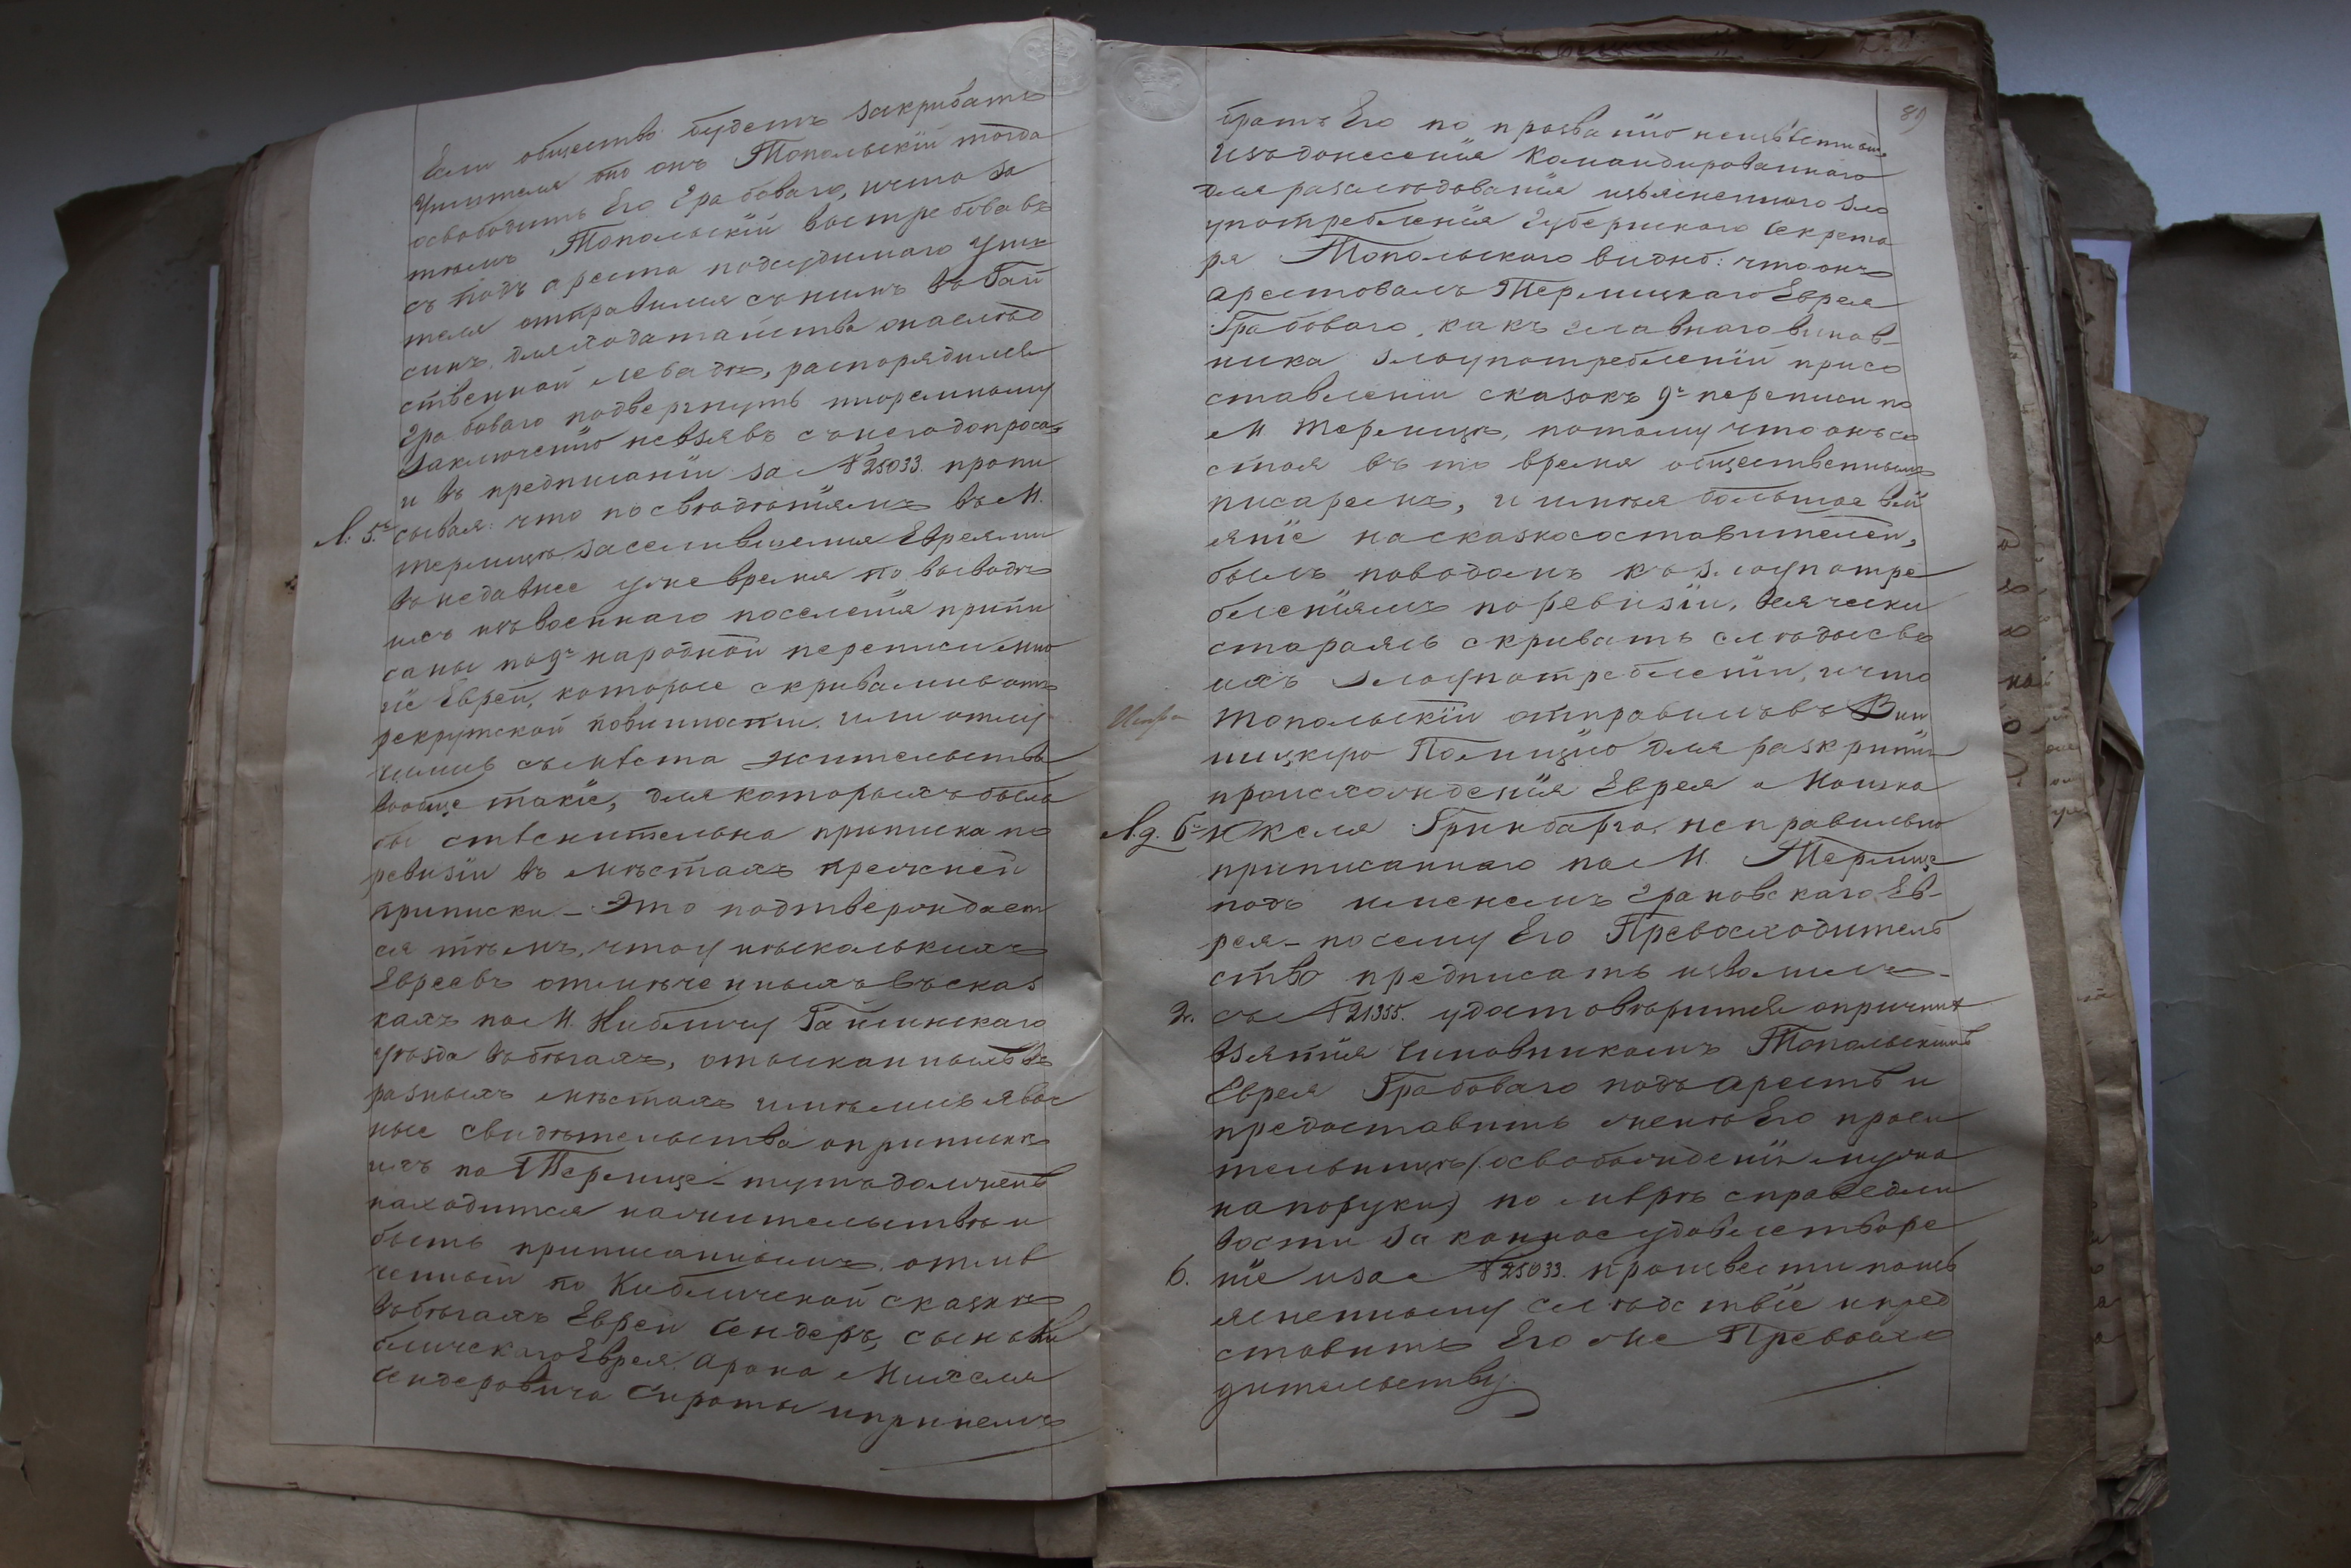 Если общество будетъ закривать
Учителя то онъ Топольскій тогда
освободитъ Его Грабоваго, что за
тѣмъ Топольскій вытребовавъ
съ подъ ареста подсудимаго Учи
теля отправился съ нимъ въ Гай
синъ, для ходатайства о наслѣд
ственной левадѣ, распорядился
Грабоваго подвергнуть тюремному
заключенію невзявъ съ него допроса
и въ предписаніи за № 25033. пропи
Л: 5. сывая: что по свѣдѣніямъ въ М.
Терлицѣ заселившемся Евреями
въ недавнее уже время по выводѣ
ихъ изъ военнаго поселенія припи
саны по 9й народной переписи мно
гіе Евреи, которые скривались отъ
рекрутской повинности, или отлу
чились съ мѣста жительства
вообще такіе, для которыхъ была
бы стѣснительна приписка по
ревизіи въ мѣстахъ прежней
приписки. Это подтверждает
ся тѣмъ, что у нѣсколькихъ
Евреевъ отмѣченныхъ въ сказ
кахъ по М. Кибличу Гайсинскаго
уѣзда въ бѣгахъ, отысканныхъ въ
разныхъ мѣстахъ имѣлись явоч
ные свидѣтельства о припискѣ
ихъ по Терлице тутъ долженъ
находится на жительствѣ и
быть приписаннымъ, отмѣ
ченный по Кибличской сказкѣ
въ бѣгахъ Еврей Сендеръ, сынъ Ки
бличскаго Еврея Арона Михеля
Сендеровича Сироты и при немъ
89
братъ Его по прозванію неизвѣстный
Изъ донесенія Командированнаго
для разслѣдованія изъясненнаго зло
употребленія Губернскаго Секрета
ря Топольскаго видно: что онъ
арестовалъ Терлицкаго Еврея
Грабоваго, какъ главнаго винов-
ника злоупотребленій при со
ставленіи сказокъ 9й переписи по
М Терлицѣ, потому что онъ со
стоя въ то время общественнымъ
писаремъ, и имѣя большое влі
яніе на сказкосоставителей,
былъ поводомъ къ злоупотре
бленіямъ по ревизіи, всячески
стараясь скривать слѣды сво
ихъ злоупотребленій, и что
Топольскій отправилъ въ Вин
ницкую Полицію для разкритія
происхожденія Еврея Мошка
Л.д. 6. Ижеля Гринбарга, неправильно
приписаннаго по М. Терлице
подъ именемъ Грановскаго Ев-
рея – посему Его Превосходитель
ство предписать изволилъ
2. съ № 21355. удостовѣрится о причинѣ
взятія Чиновникомъ Топольскимъ
Еврея Грабоваго подъ арестъ и
предоставить женѣ Его проси
тельницѣ (освобожденіи мужа
на поруки) по мѣрѣ справедли
вости законное удовлетворе
6. ніе и за № 25033. произвести по изъ
ясненному слѣдствіе и пред
ставить Его же Превосхо
дительству.